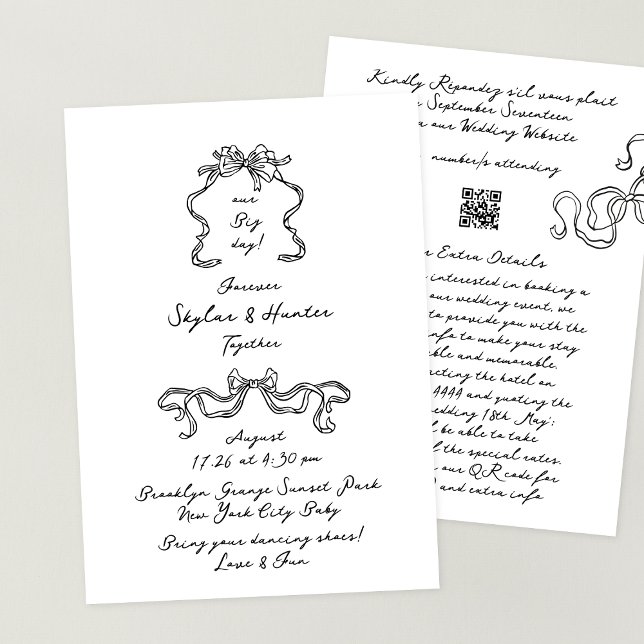 our
Big
day!
Forever
Skylar & Hunter
Together
August
17.26 at 4:30 pm
Brooklyn Grange Sunset Park
New York City Baby
Bring your dancing shoes!
Love & Fun
Kindly Répondez s'il vous plait
September Seventeen
our Wedding Website
number/s attending
Extra Details
interested in booking a
our wedding event, we
to provide you with the
info to make your stay
and memorable.
the hotel on
4444 and quoting the
18th May':
be able to take
the special rates.
our QR code for
and extra info